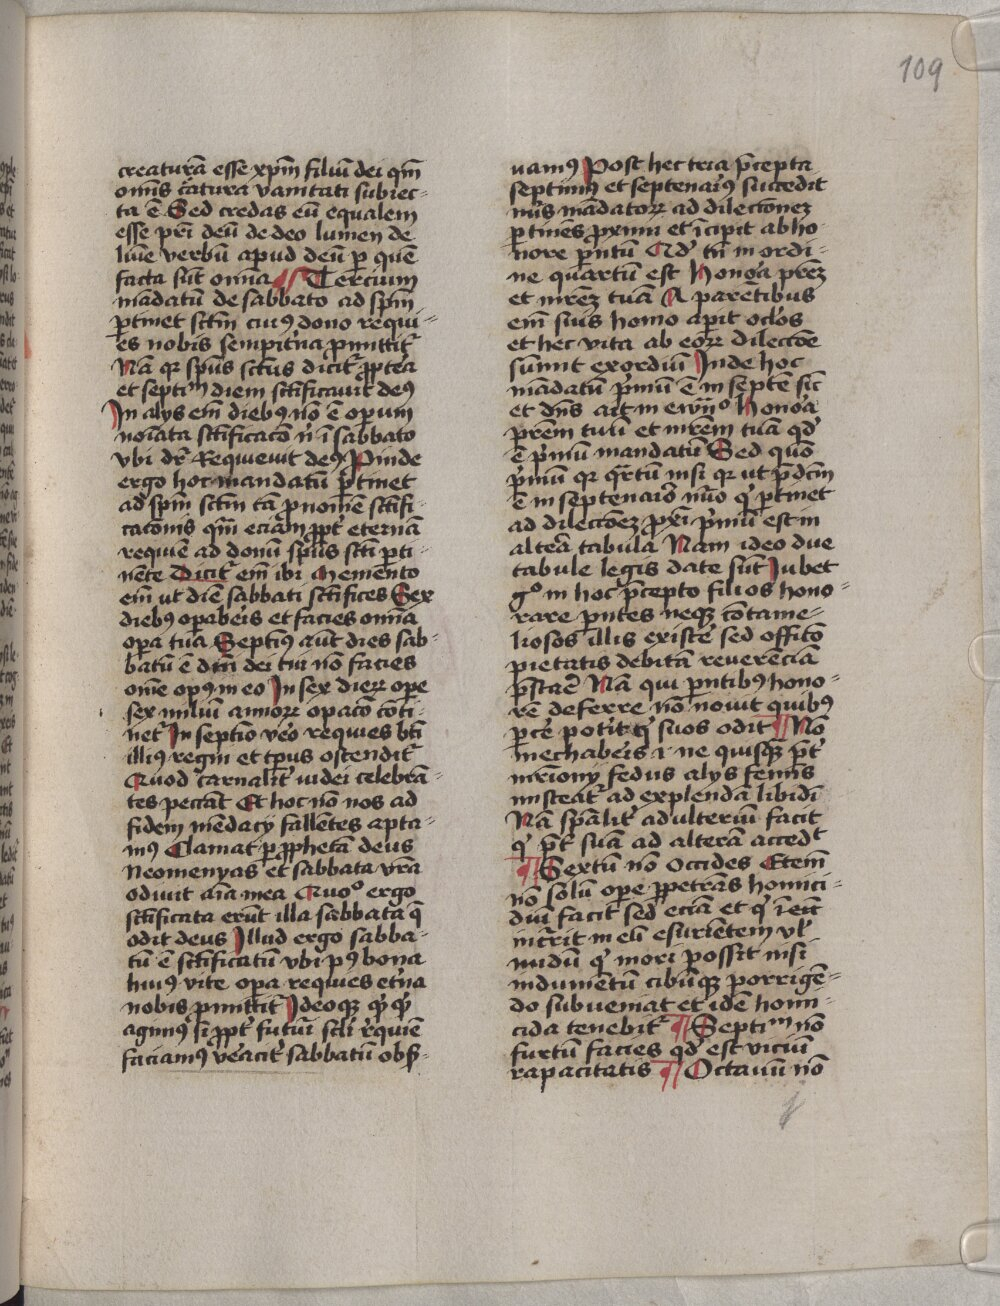 109
creaturā esse xp̄m filiū dei qm̄
om̄is c̄atura vanitati subiec-
ta ē Sed credas eū equalem
esse pr̄i deū de deo lumen de
lūie verbū apud deū p quē
facta sūt om̄ia ¶ Tercium
mādatū de sabbato ad sp̄m
ptinet sc̄tm cuiꝰ dono requi-
es nobis sempit̄na pmittit᷑
Nā qr sp̄us sc̄tus dicit᷑ ꝓpt̄ea
et septiᵐ diem sc̄tificauit deꝰ
In alys em̄ diebꝰ nō ē opum
noīata sc̄tificacō nˡ ī sabbato
vbi dr̄ Requieuit deꝰ Pinde
ergo hoc mandatū p̄tinet
ad sp̄m sc̄tm tā p nomē sc̄tifi-
catōnis qm̄ eciam ꝓpt̄ eternā
requiē ad donū sp̄us sc̄ti pti-
nēte Dicit᷑ em̄ ibi Memento
em̄ ut diē sabbati sc̄tifices Sex
diebꝰ opabeis et facies om̄ia
opa tua Septiꝰ aūt dies sab-
batū ē dn̄i dei tui nō facies
om̄e opꝰ in eo In sex dieꝝ ope
sex miliū annoꝝ opacō cōti-
net᷑ In septīo v̄o requies bt̄i
illiꝰ regni et tp̄us ostendit᷑
Quod carnalit̄ iudei celebrā-
tes peccāt Et hoc nō nos ad
fidem mēdacy fallētes apta-
mꝰ Clamat p ꝓphetā deus
Neomenyas et sabbata vr̄a
odiuit aīa mea Quoº ergo
sc̄tificata erūt illa sabbata q̄
odit deus Illud ergo sabba-
tū ē sc̄tificatū vbi pꝰ bona
huiꝰ vite opa requies et̄na
nobis pmittit᷑ Ideoqꝫ qͥ qͥ
agimꝰ si ꝓpt̄ futuri sc̄li requiē
faciamꝰ veracit̄ sabbatū obs̄-
uamꝰ Post hec tria p̄cepta
septimꝰ et septenariꝰ succedit
nūs mādatoꝝ ad dilectōneꝫ
ptinēs pximi et īcipit ab ho
nore pn̄tū Qd̄ tn̄ in ordi-
ne quartū est Honōa pr̄eꝫ
et mr̄eꝫ tuā A parētibus
em̄ suis homo apit oc̄los
et hec vita ab eoꝝ dilectōe
sumit exordiū Inde hoc
mādatū p̄mū ē in septē sic̄
et dn̄s ait in ewn̄ᵒ Honōa
pr̄em tuū et mr̄em tuā qd̄
ē p̄mū mandatū Sed quō
p̄mū qr qr̄tū nisi qr ut p̄dc̄m
ē in septenario nūo qͥ ptinet
ad dilectōeꝫ pxi p̄mū est in
altera tabula Nam ideo due
tabule legis date sūt Iubet
gº in hoc p̄cepto filios hono-
rare pn̄tes neqꝫ cōtame-
liosos illis existē sed officō
pietatis debitā reuerēciā
p̄stare Nā qui pn̄tibꝰ hono-
rē deferre nō nouit quibꝰ
pcē potit qͥ suos odit ¶ Nō
mechabeis i ne quisqꝫ p̄t
mr̄iony fedus alys femīs
misceat᷑ ad explendā libidī
Nā spālit̄ adulteriū facit
qͥ p̄t suā ad alterā accedt
¶ Sextū nō occides Etem̄
nō solū ope ꝓpetrās homici-
diū facit sed eciā et qͥ
in eū esurientem vl̄
nudū qͥ mori possit nisi
indumētū cibūqꝫ porrigē-
do subueniat et idē homi-
cida tenebit᷑ ¶ Septiᵐ nō
furtū facies qd̄ est viciū
rapacitatis ¶ Octauū nō